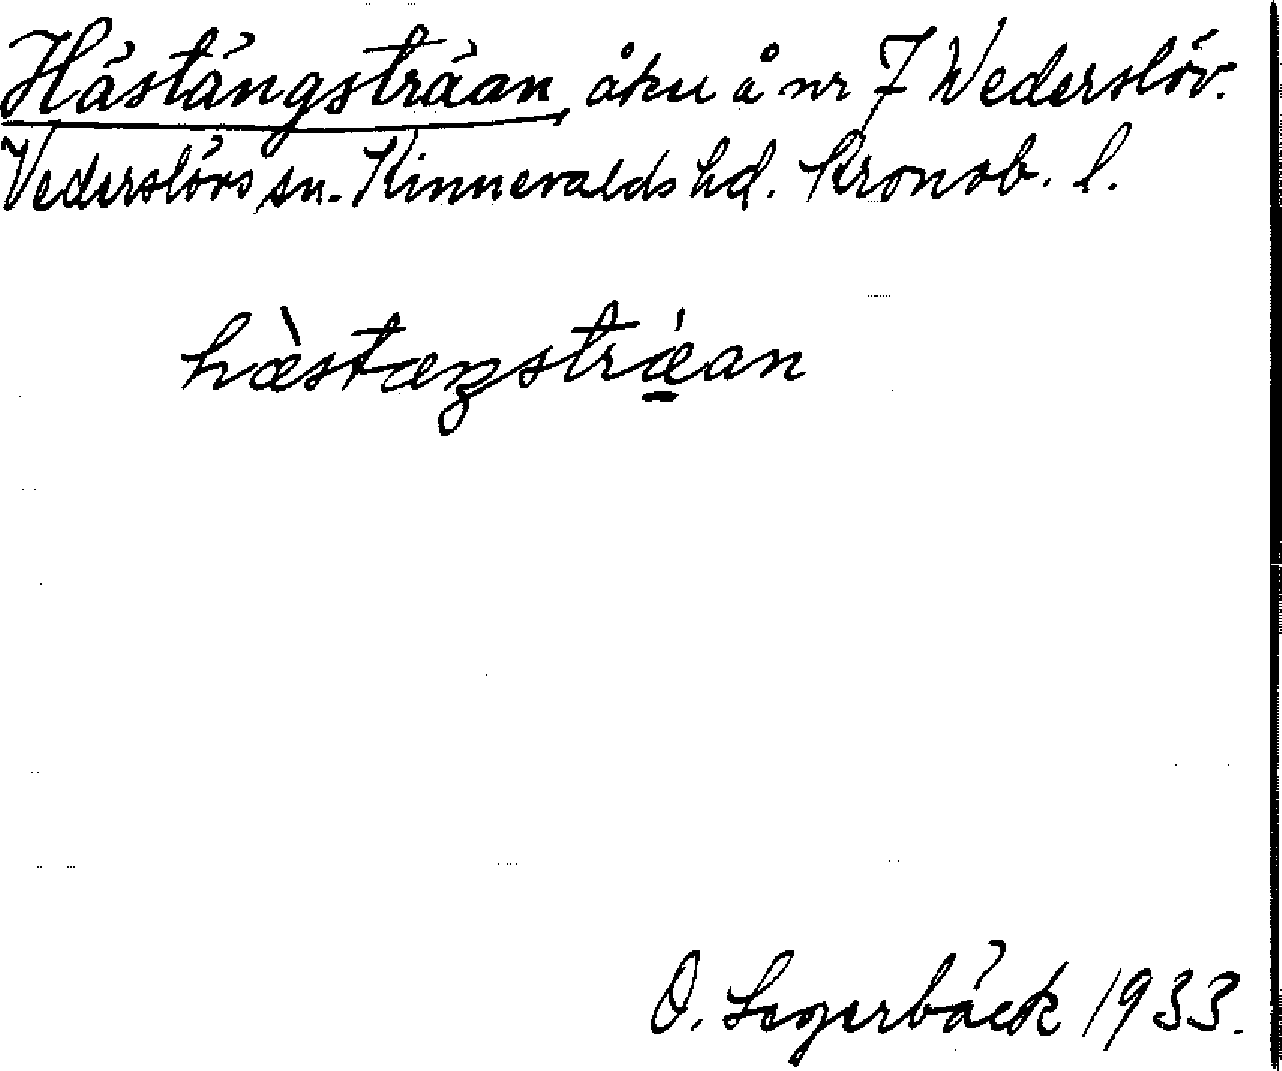 Hästängsträan, åker å nr 7 Vederslöv.
Vederslövs sn. Kinnevalds hd. Kronob. l.
hæ̀stæŋstrǽan
O. Segerbäck 1933.